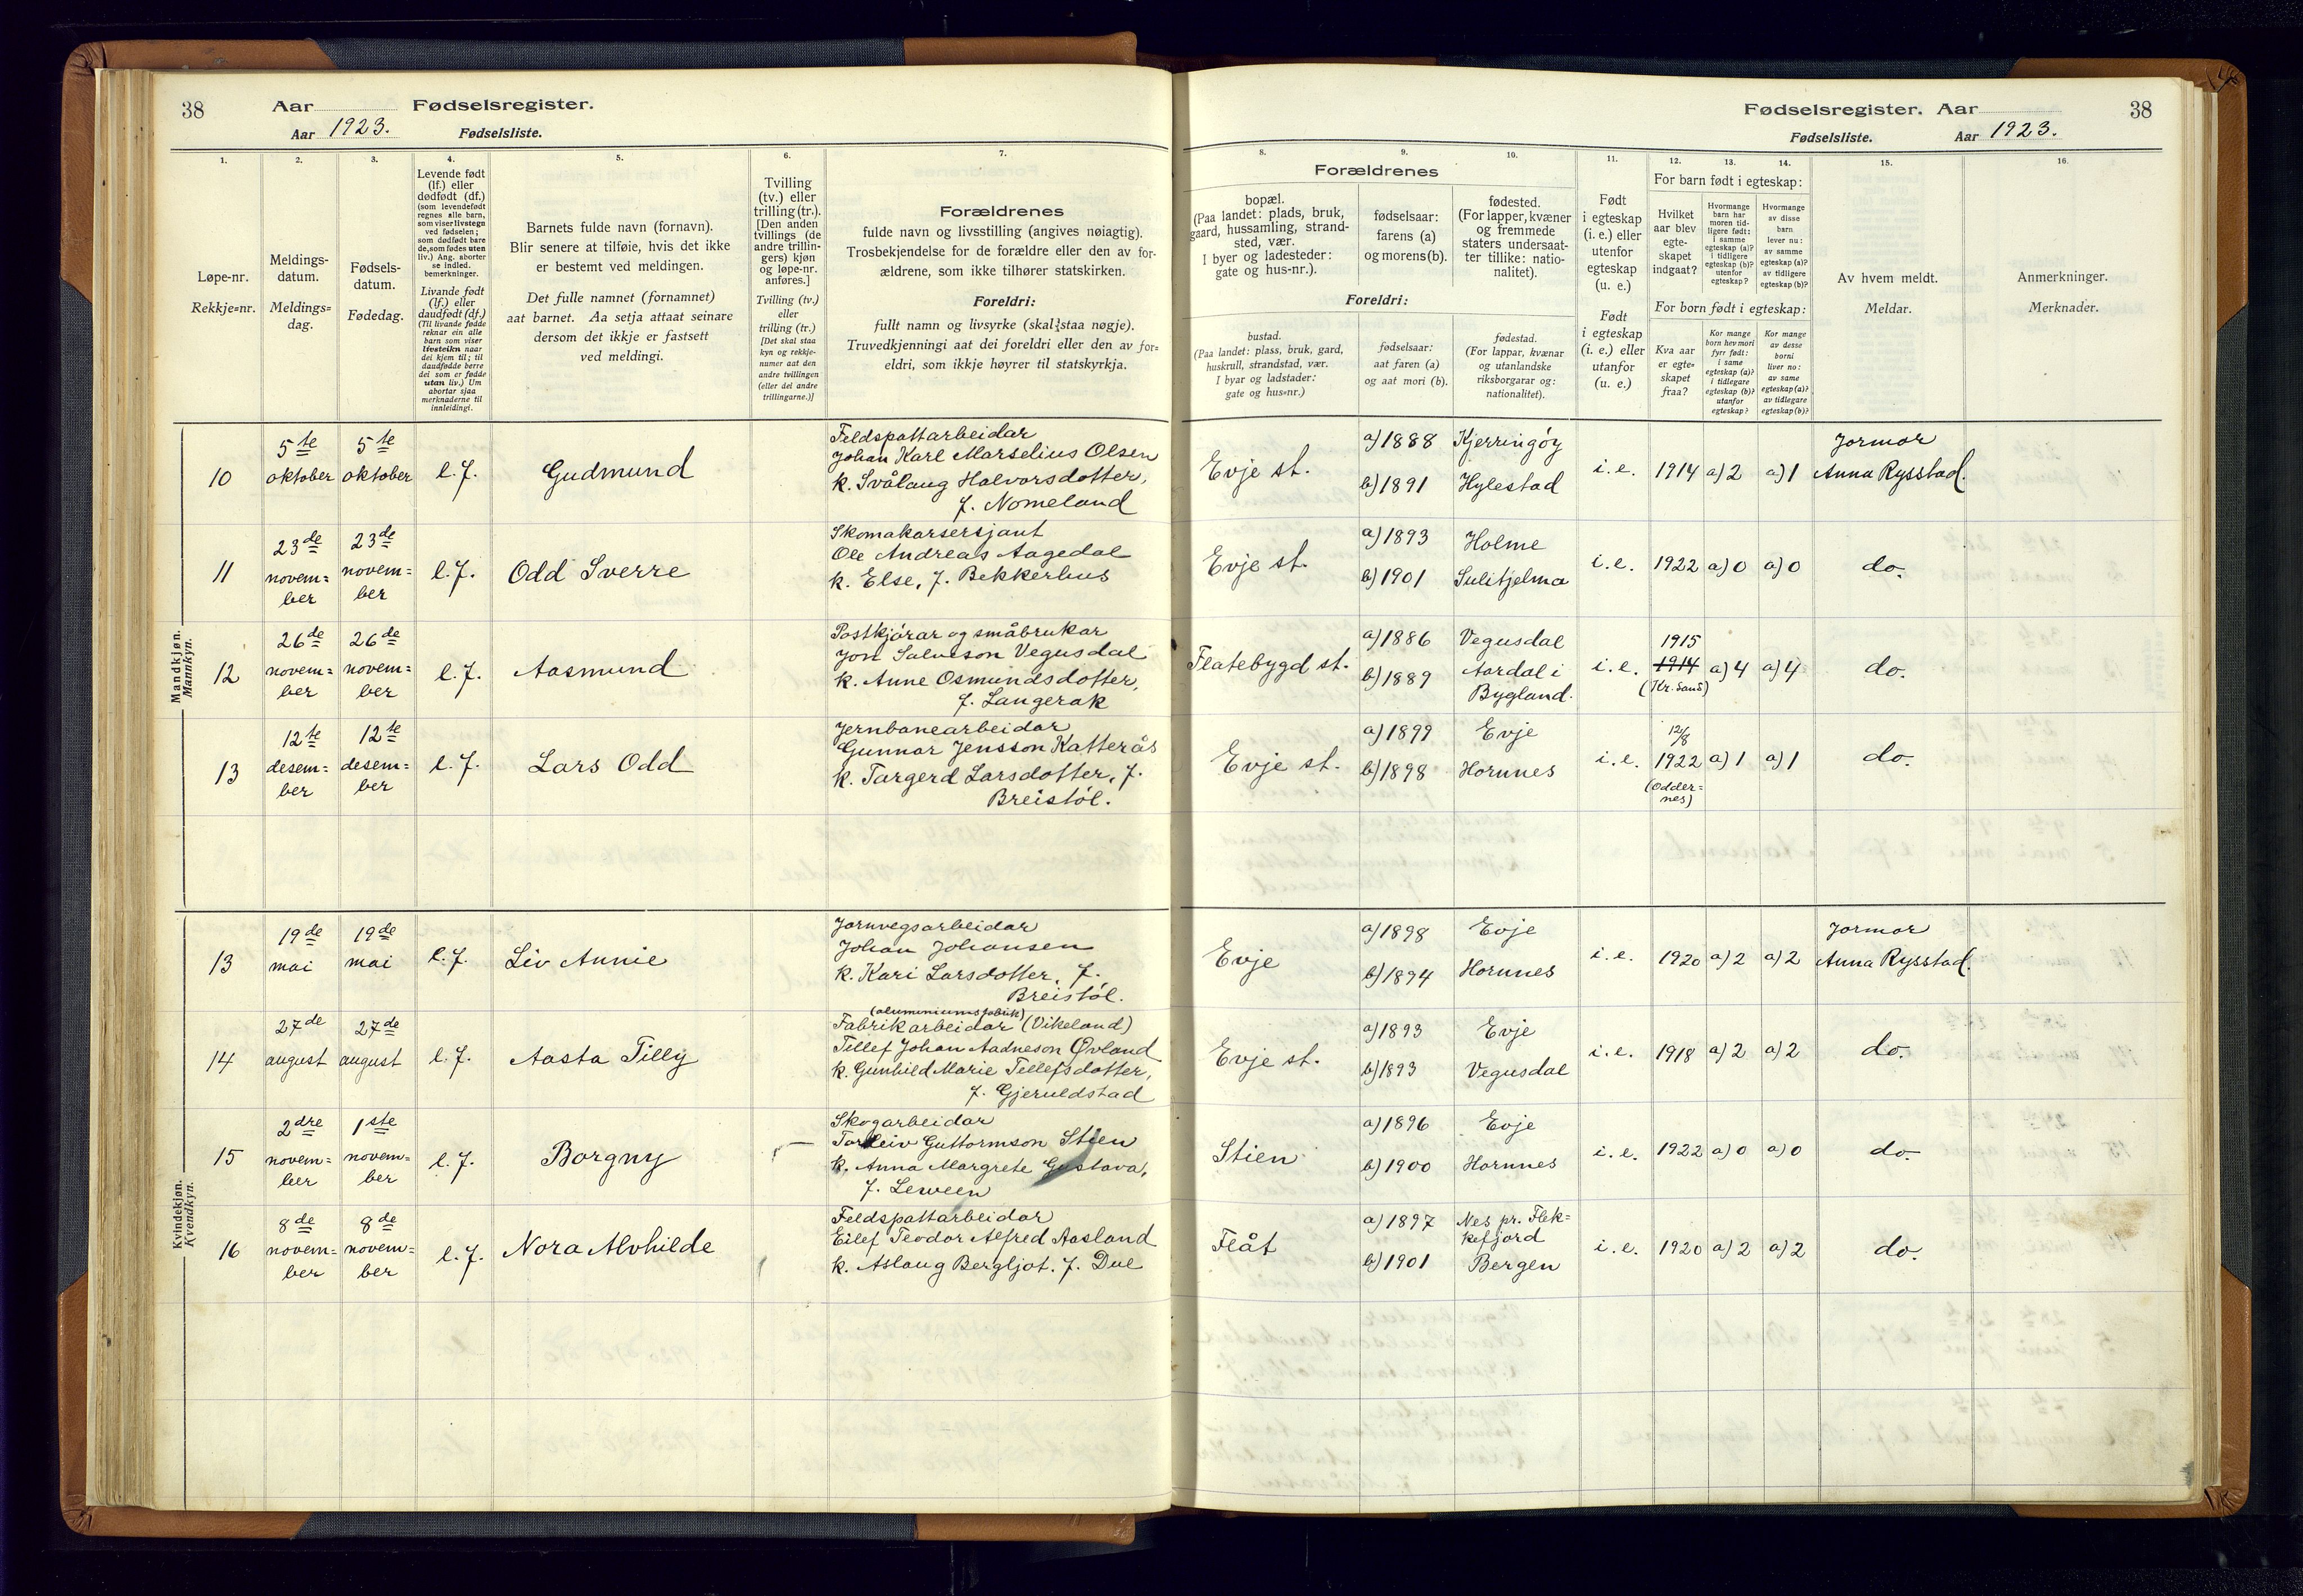 38
Aar
Fødselsregister.
Aar 1923.
Fødselsliste.
1.
2.
3.
4.
5.
6.
7.
Løpe-nr.
Rekkje=nr.
Meldings-
datum.
Meldings=
dag.
Fødsels-
datum.
Fødedag.
Levende født
(lf.) eller
dødfødt (df.)
(som levendefødt
regnes alle barn,
som viser livstegn
ved fødselen;
som dødfødt bare
de, som fødes uten
liv.) Ang. aborter
se indled.
bemerkninger.
Livande født
(lf.) eller
daudfødt (df.)
(Til livande fødde
reknar ein alle
barn som viser
livsteikn naar
dei kjem til; til
daudfødde berre
dei som er fødde
utan liv.) Um
abortar sjaa
merknaderne til
innleidingi.
Barnets fulde navn (fornavn).
Blir senere at tilføie, hvis det ikke
er bestemt ved meldingen.
Det fulle namnet (fornamnet)
aat barnet. Aa setja attaat seinare
dersom det ikkje er fastsett
ved meldingi.
Tvilling
(tv.) eller
trilling (tr.).
[Den anden
tvillings (de
andre trillin-
gers) kjøn
og løpe-nr.
anføres.]
Tvilling (tv.)
eller
trilling (tr.)
[Det skal staa
kyn og rekkje-
numer aat den
andre tvillingen
(eller dei andre
trillingarne.)]
Forældrenes
fulde navn og livsstilling (angives nøiagtig).
Trosbekjendelse for de forældre eller den av for-
ældrene, som ikke tilhører statskirken.
Foreldri:
fullt namn og livsyrke (skal staa nøgje).
Truvedkjenningi aat dei foreldri eller den av for=
eldri, som ikkje høyrer til statskyrkja.
Mandkjøn.
Mannkyn.
10
5te
oktober
5te
oktober
l. f.
Gudmund
Feldspattarbeidar
Johan Karl Marselius Olsen
k. Svålaug Halvorsdotter,
f. Nomeland
11
23de
novem=
ber
23de
novem=
ber
l. f.
Odd Sverre
Skomakarsersjant
Ole Andreas Aagedal
k. Else, f. Bekkerhus
12
26de
novem=
ber
26de
novem=
ber
l. f.
Aasmund
Postkjørar og småbrukar
Jon Salveson Vegusdal
k. Anne Osmundsdotter,
f. Langerak
13
12te
desem=
ber
12te
desem=
ber
l. f.
Lars Odd
Jernbanearbeidar
Gunnar Jensson Katterås
k. Targerd Larsdotter, f.
Breistøl.
Kvindekjøn.
Kvendkyn.
13
19de
mai
19de
mai
l. f.
Liv Annie
Jarnvegsarbeidar
Johan Johansen
k. Kari Larsdotter, f.
Breistøl.
14
27de
august
27de
august
l. f.
Aasta Tilly
(aluminiumsfabrik)
Fabrikarbeidar (Vikeland)
Tellef Johan Aadneson Øvland
k. Gunhild Marie Tellefsdotter,
f. Gjeruldstad
15
2dre
novem=
ber
1ste
novem=
ber
l. f.
Borgny
Skogarbeidar
Torleiv Guttormson Stien
k. Anna Margrete Gustava,
f. Leween
16
8de
novem=
ber
8de
novem=
ber
l. f.
Nora Alvhilde
Feldspattarbeidar
Eilef Teodor Alfred Aasland
k. Aslaug Bergljot. f. Due
Fødselsregister. Aar
38
Fødselsliste.
Aar 1923.
8.
9.
10.
11.
12.
13.
14.
15.
16.
Forældrenes
bopæl.
(Paa landet: plads, bruk,
gaard, hussamling, strand-
sted, vær.
I byer og ladesteder:
gate og hus-nr.).
fødselsaar:
farens (a)
og morens (b).
fødested.
(For lapper, kvæner
og fremmede
staters undersaat-
ter tillike: natio-
nalitet).
Foreldri:
bustad.
(Paa landet: plass, bruk, gard,
huskrull, strandstad, vær.
I byar og ladstader:
gate og hus=nr.)
fødselsaar:
aat faren (a)
og aat mori (b).
fødestad.
(For lappar, kvænar
og utanlandske
riksborgarar og:
nationalitet).
Født
i egteskap
(i. e.) eller
utenfor
egteskap
(u. e.)
Født
i egteskap
(i. e.) eller
utanfor
(u. e.)
For barn født i egteskap:
Hvilket
aar blev
egte-
skapet
indgaat?
Hvormange
barn har
moren tid-
ligere født:
i samme
egteskap (a)?
i tidligere
egteskap (b)?
utenfor
egteskap?
Hvormange
av disse
barn
lever nu:
av samme
egteskap (a)?
av tidligere
egteskap (b)?
For born født i egteskap:
Kva aar
er egte-
skapet
fraa?
Kor mange
born hev mori
fyrr født:
i same
egteskap (a)?
i tidlegare
egteskap (b)?
utanfor
egteskap?
Kor mange
av desse
borni
liver no:
av same
egteskap (a)?
av tidlegare
egteskap (b)?
Av hvem meldt.
Meldar.
Anmerkninger.
Merknader.
Evje st.
a) 1888
b) 1891
Kjerringøy
Hylestad
i. e.
1914
a) 2
a) 1
Jormor
Anna Rysstad.
Evje st.
a) 1893
b) 1901
Holme
Sulitjelma
i. e.
1922
a) 0
a) 0
do.
Flatebygd st.
a) 1886
b) 1889
Vegusdal
Aardal i
Bygland.
i. e.
1915
1914
(Kr.sand)
a) 4
a) 4
do.
Evje st.
a) 1899
b) 1898
Evje
Hornnes
i. e.
12/8
1922
(Odder=
nes)
a) 1
a) 1
do.
Evje
a) 1898
b) 1894
Evje
Hornnes
i. e.
1920
a) 2
a) 2
Jormor
Anna Rysstad.
Evje st.
a) 1893
b) 1893
Evje
Vegusdal
i. e.
1918
a) 2
a) 2
do.
Stien
a) 1896
b) 1900
Evje
Hornnes
i. e.
1922
a) 0
a) 0
do.
Flåt
a) 1897
b) 1901
Nes pr. Flek=
kefjord
Bergen
i. e.
1920
a) 2
a) 2
do.